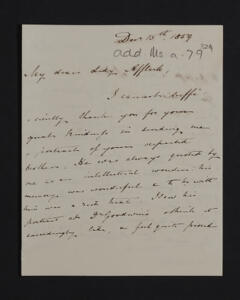 Decr 15th 1859
add Ms a-79
My dear Lady Affleck,
I cannot suffi
-ciently thank you for your
great kindness in sending me
a portrait of your respected
brother. He was always quoted by
me as an intellectual wonder: his
memory was wonderful & to be with
him was a rich treat. I saw his
portrait at Dr Goodwin's, think it
exceedingly like, & feel quite proud